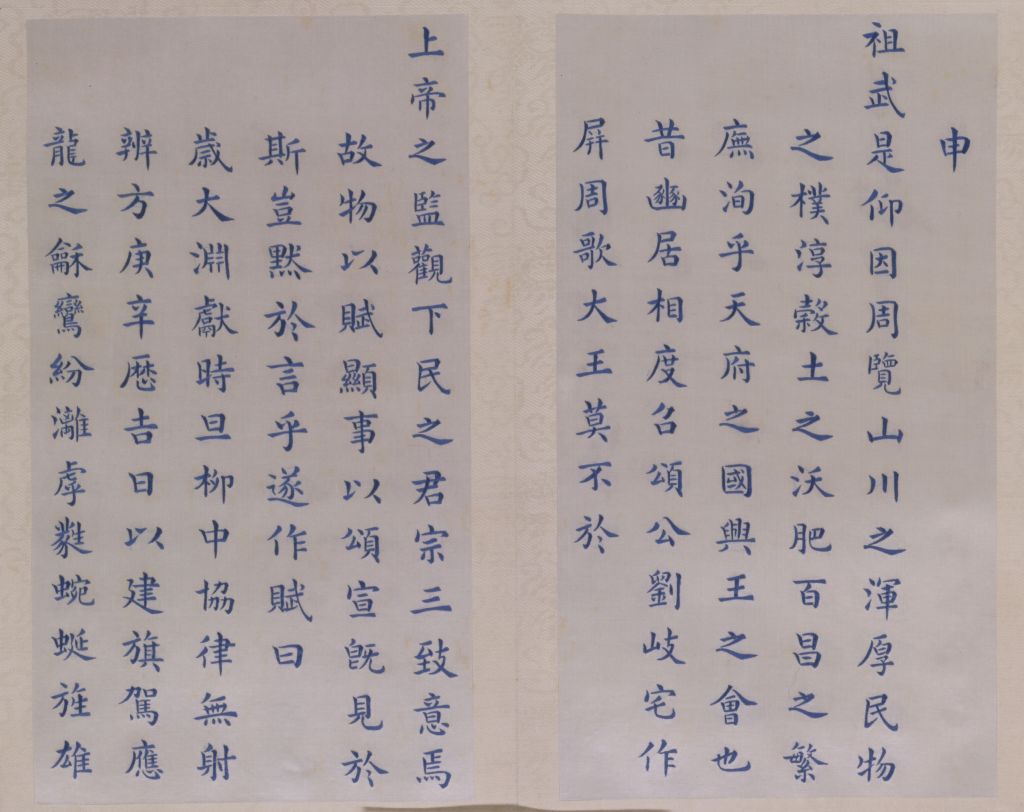 申
祖武是仰因周覽山川之渾厚民物
之樸淳穀土之沃肥百昌之繁
廡洵乎天府之國興王之會也
昔豳居相度召頌公劉岐宅作
屏周歌大王莫不於
上帝之監觀下民之君宗三致意焉
故物以賦顯事以頌宣既見於
斯豈默於言乎遂作賦曰
歲大淵獻時旦柳中協律無射
辨方庚辛歷吉日以建旗駕應
龍之龢鸞紛灕虖蕤蜿蜒旌雄